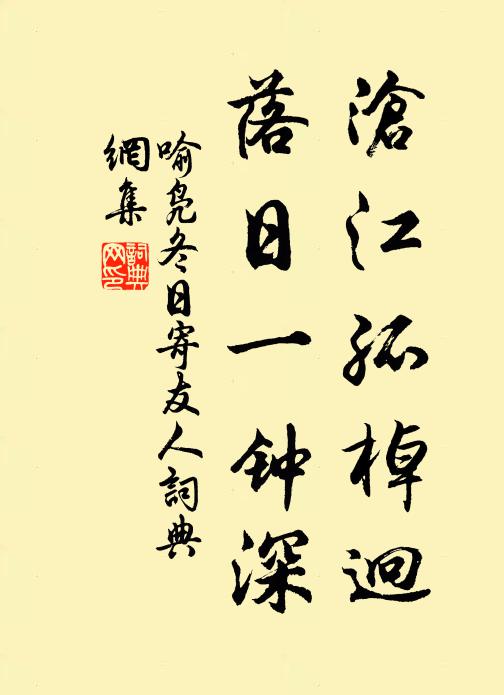 滄江孤棹逈
落日一钟深
喻凫冬日寄友人詞典
網集
詞典
网印